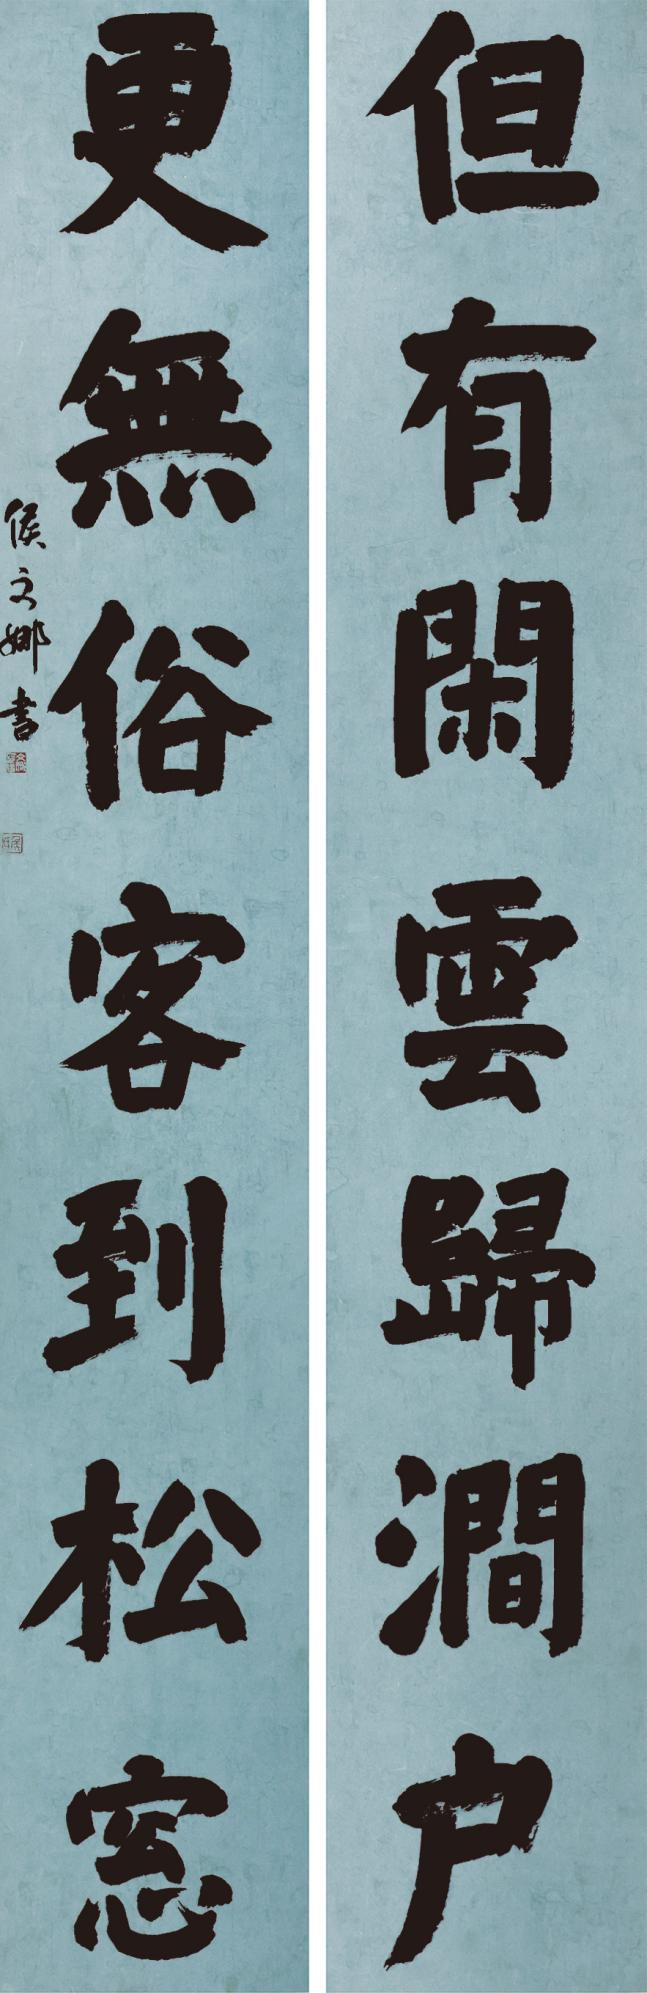 但有閑雲歸澗户
更無俗客到松窓
侯文娜書